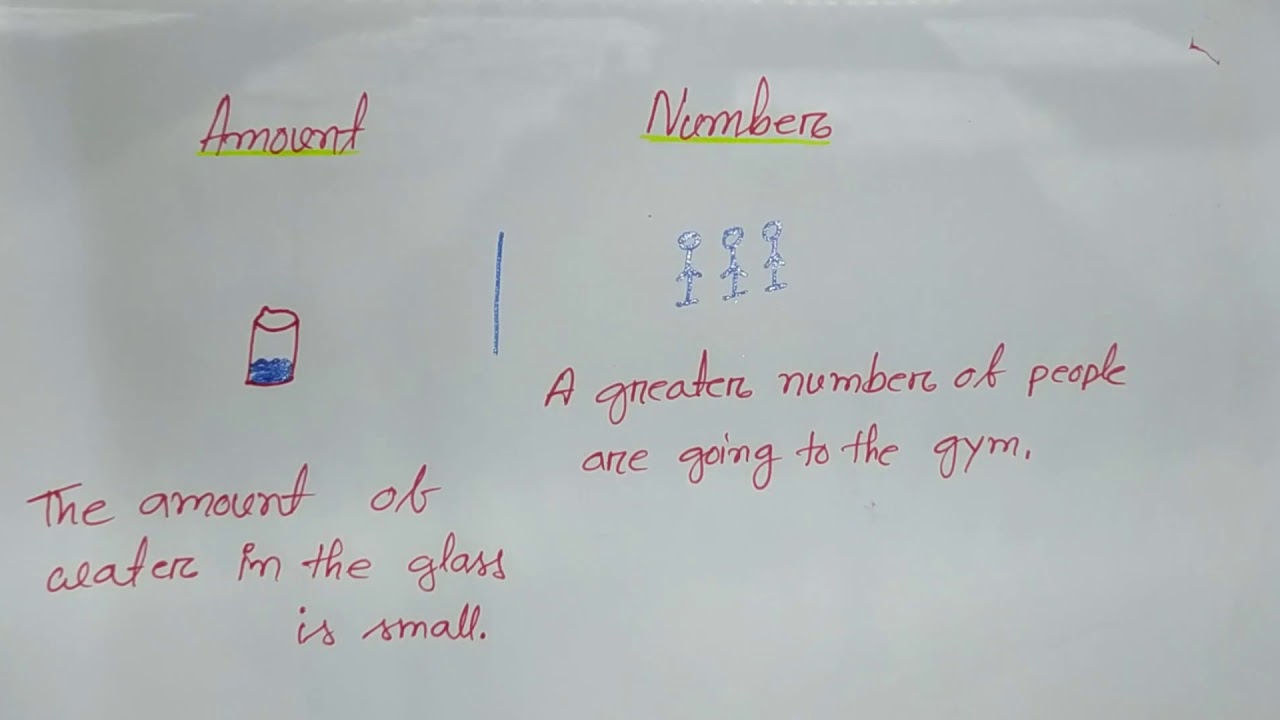 Amount
The amount of
water in the glass
is small.
Number
A greater number of people
are going to the gym.